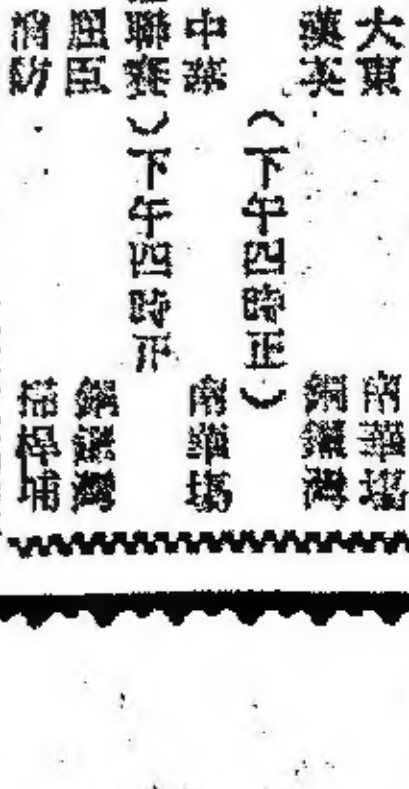 大東 南華場
漢英 銅鑼灣
(下午四時正)
中華 南華場
聯賽)下午四時正
屈臣 銅鑼灣
消防 掃桿埔